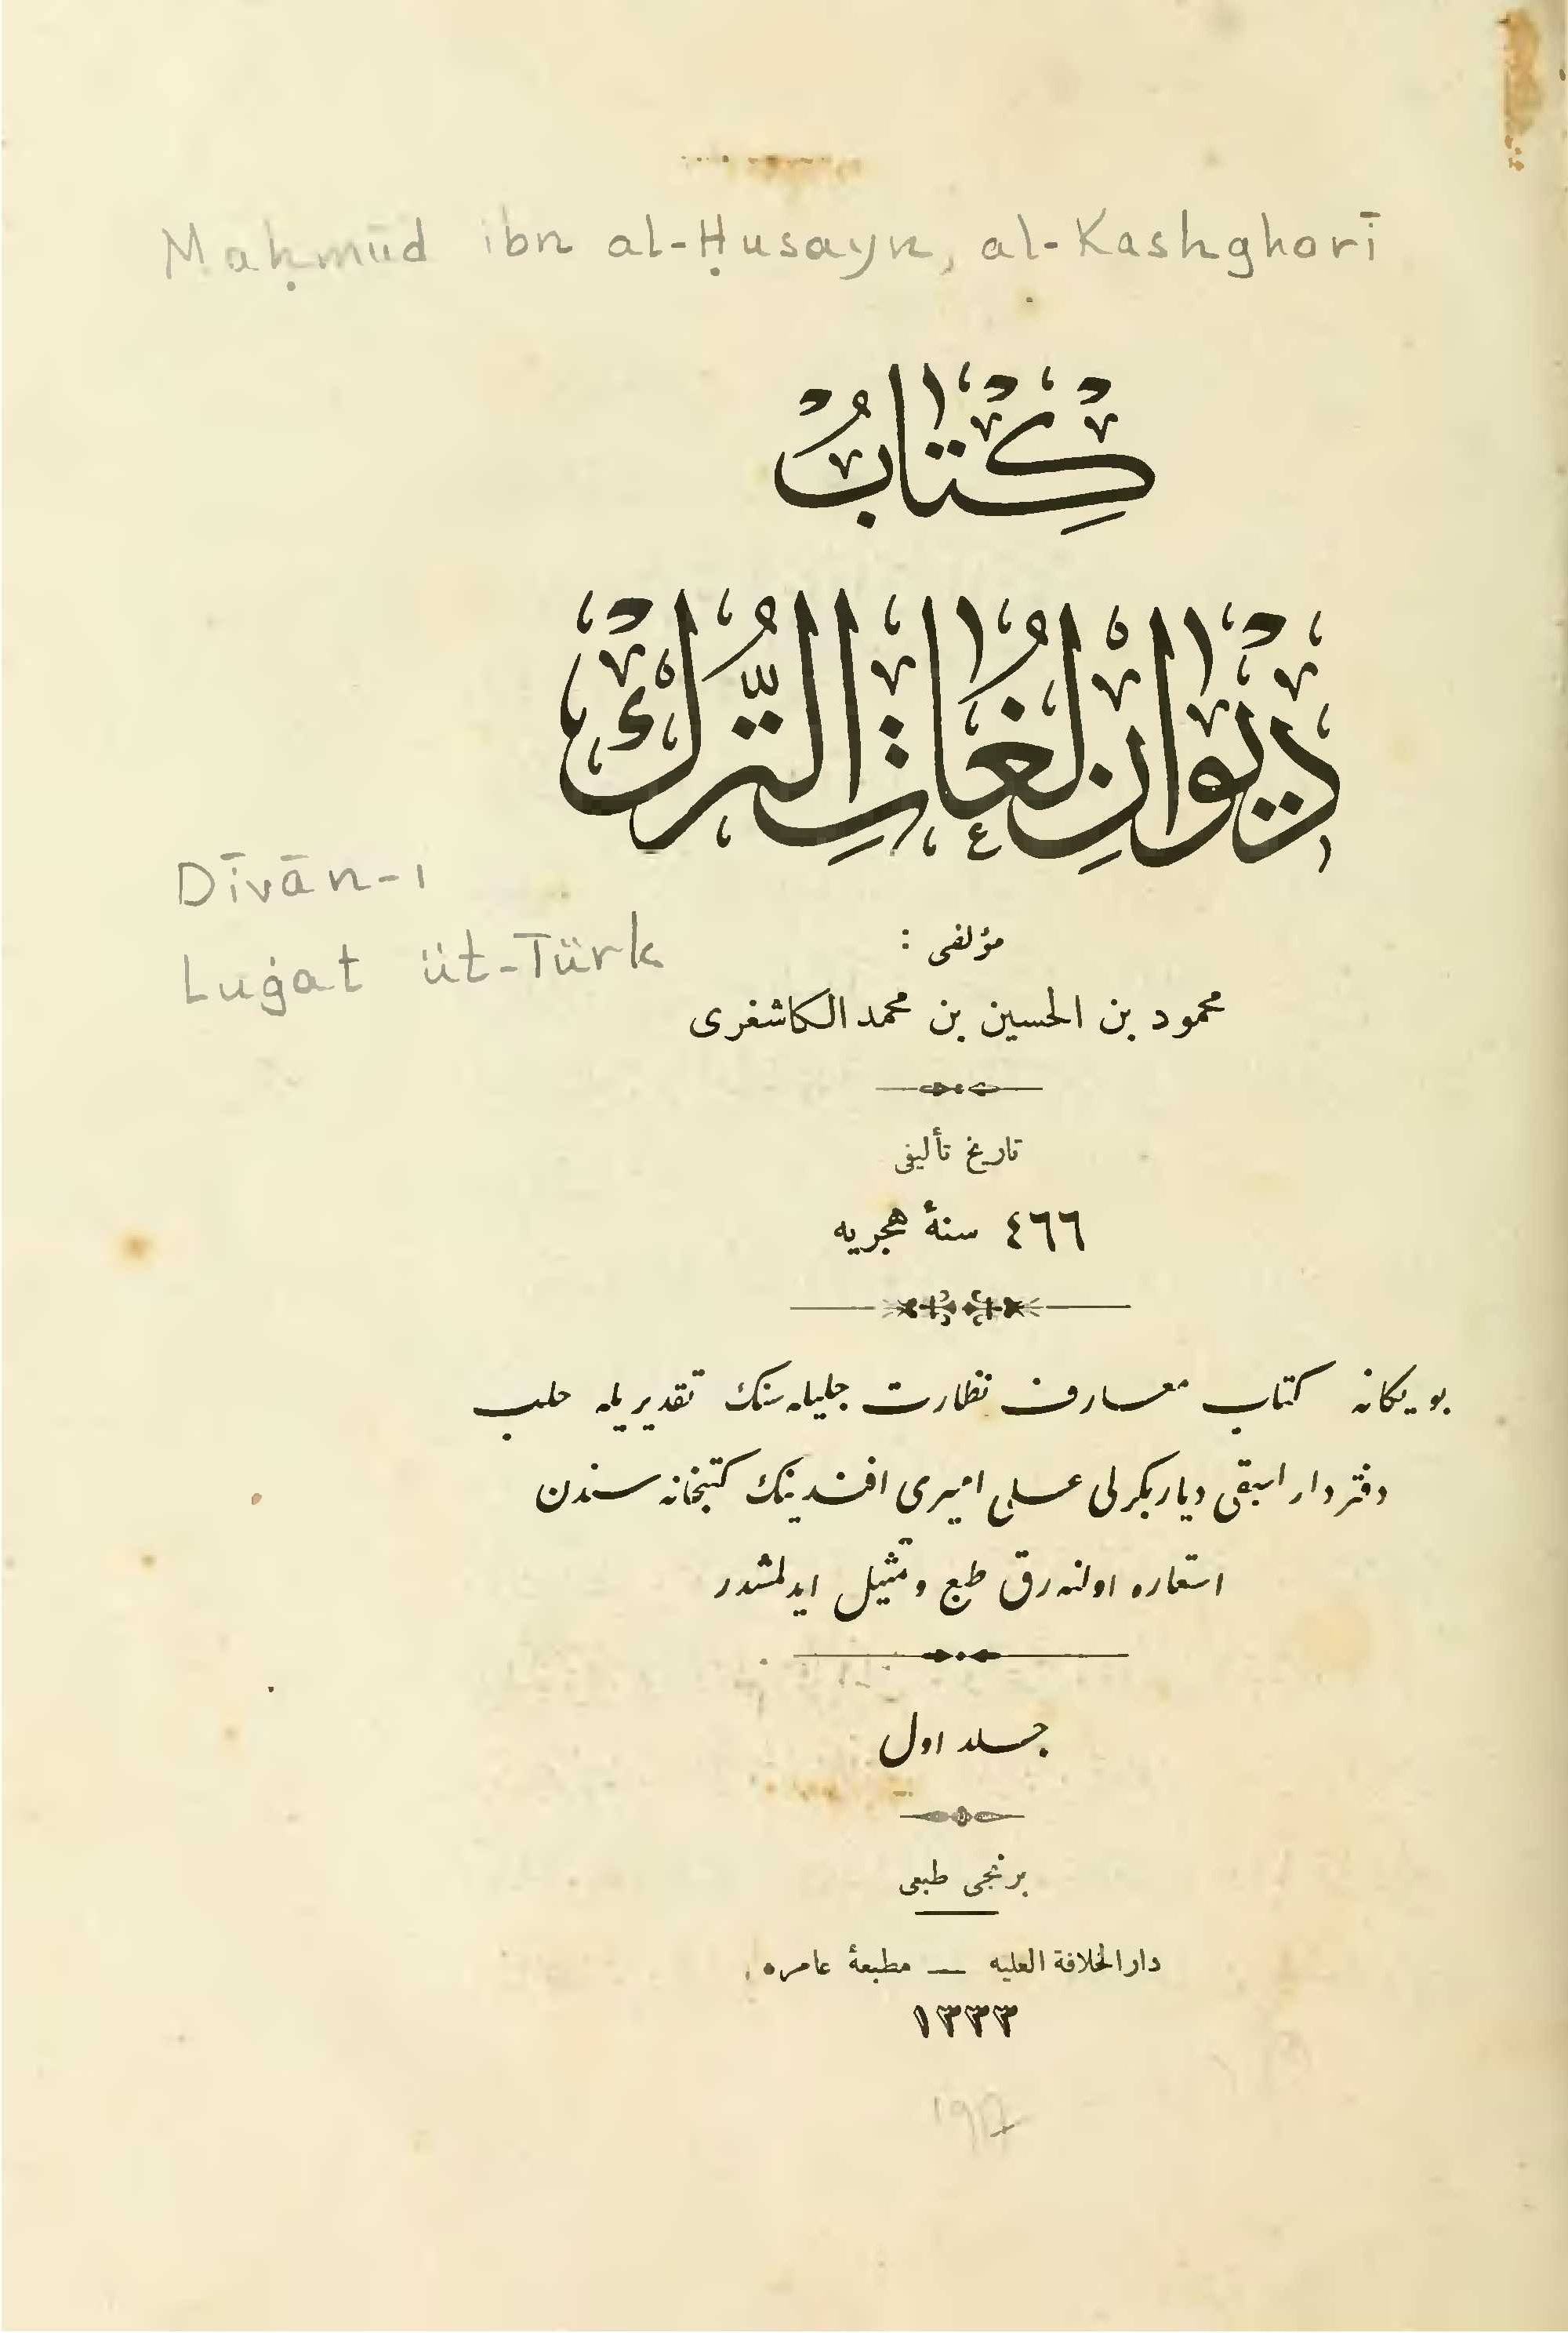 Maḥmūd ibn al-Ḥusayn, al-Kashghorī
كِتَابُ
دِيوَانِ لُغَاتِ التُّرْك
Dīvān-ı
Luġat üt-Türk
مؤلفی :
محمود بن الحسين بن محمد الكاشغری
تاريخ تأليفی
٤٦٦ سنۀ هجريه
بو يكانه كتاب معارف نظارت جليله‌سنك تقديريله حلب
دفتردار اسبقی دياربكرلی علی اميری افندينك كتبخانه‌سندن
استعاره اولنه‌رق طبع و تمثيل ايدلمشدر
جلد اول
برنجی طبعی
دار الخلافة العليه — مطبعۀ عامره
١٣٣٣
1917